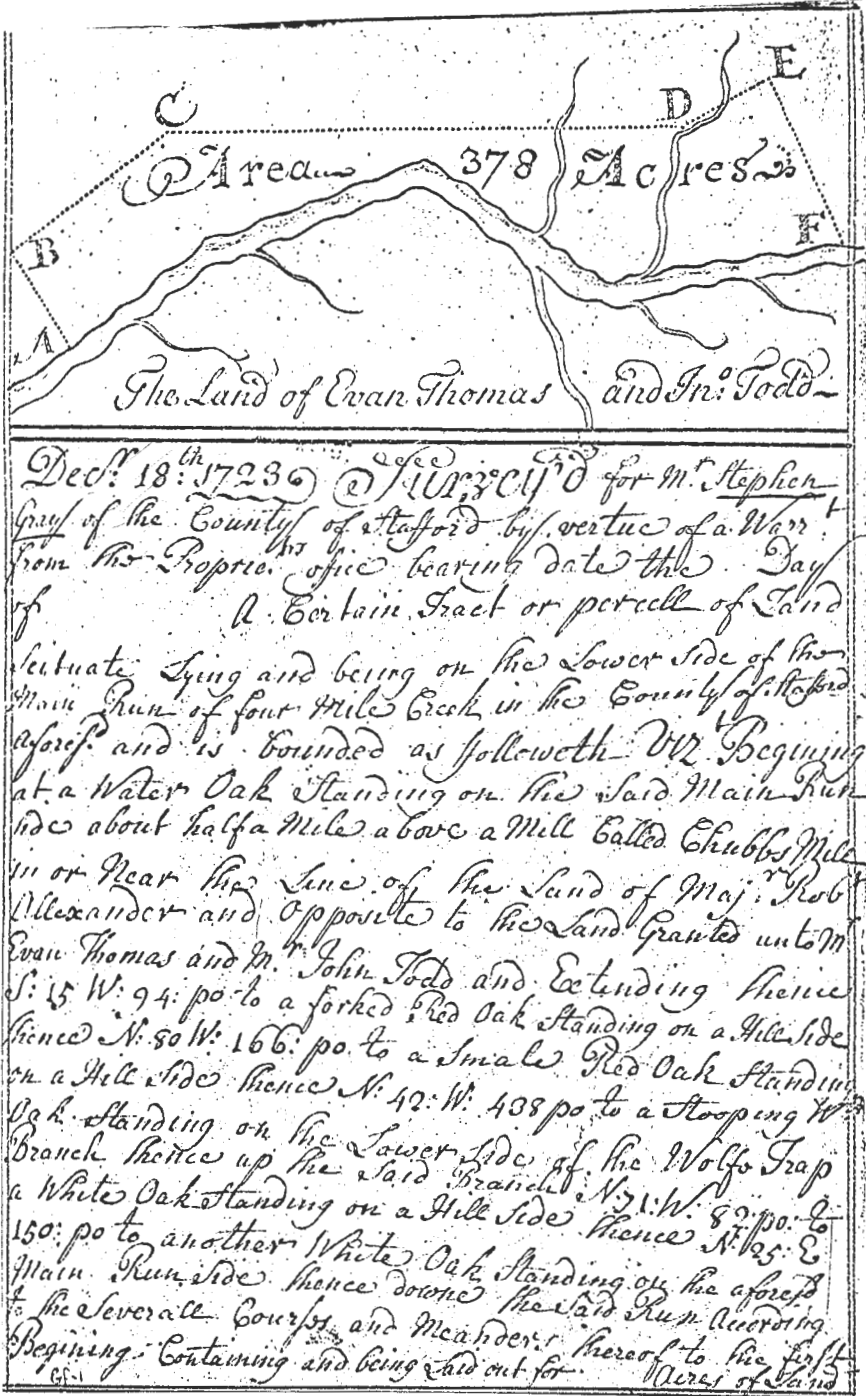 C
D
E
Area 378 Acres
B
F
A
The Land of Evan Thomas and Jno: Todd
Decr. 18:th 1723 Survey'd for Mr Stephen
Gray of the County of Stafford by vertue of a Warrt
from the Proprietrs ofice bearing date the Day
of A Certain Tract or percell of Land
Scituate Lying and being on the Lower Side of the
Main Run of four Mile Creek in the County of Stafford
aforesd. and is bounded as followeth Vizt Begining
at a Water Oak Standing on the Said Main Run
side about half a Mile above a Mill Called Chubbs Mill
in or Near the Line of the Land of Majr: Robt
Allexander and Opposite to the Land Granted unto Mr
Evan Thomas and Mr John Todd and Extending thence
S: 15 W: 94: po to a forked Red Oak Standing on a Hill Side
thence N: 80 W: 166: po to a Smale Red Oak Standing
on a Hill Side thence N: 42: W: 438 po to a Stooping
Oak Standing on the Lower Side of the Wolfe Trap
Branch thence up the Said Branch N: 71: W: 82: po: to
a White Oak Standing on a Hill Side thence N: 25: E
150: po to another White Oak Standing on the aforesd
Main Run Side thence downe the Said Run According
to the Severall Courses and Meanders thereof to the first
Begining Containing and being Laid out for Acres of Land